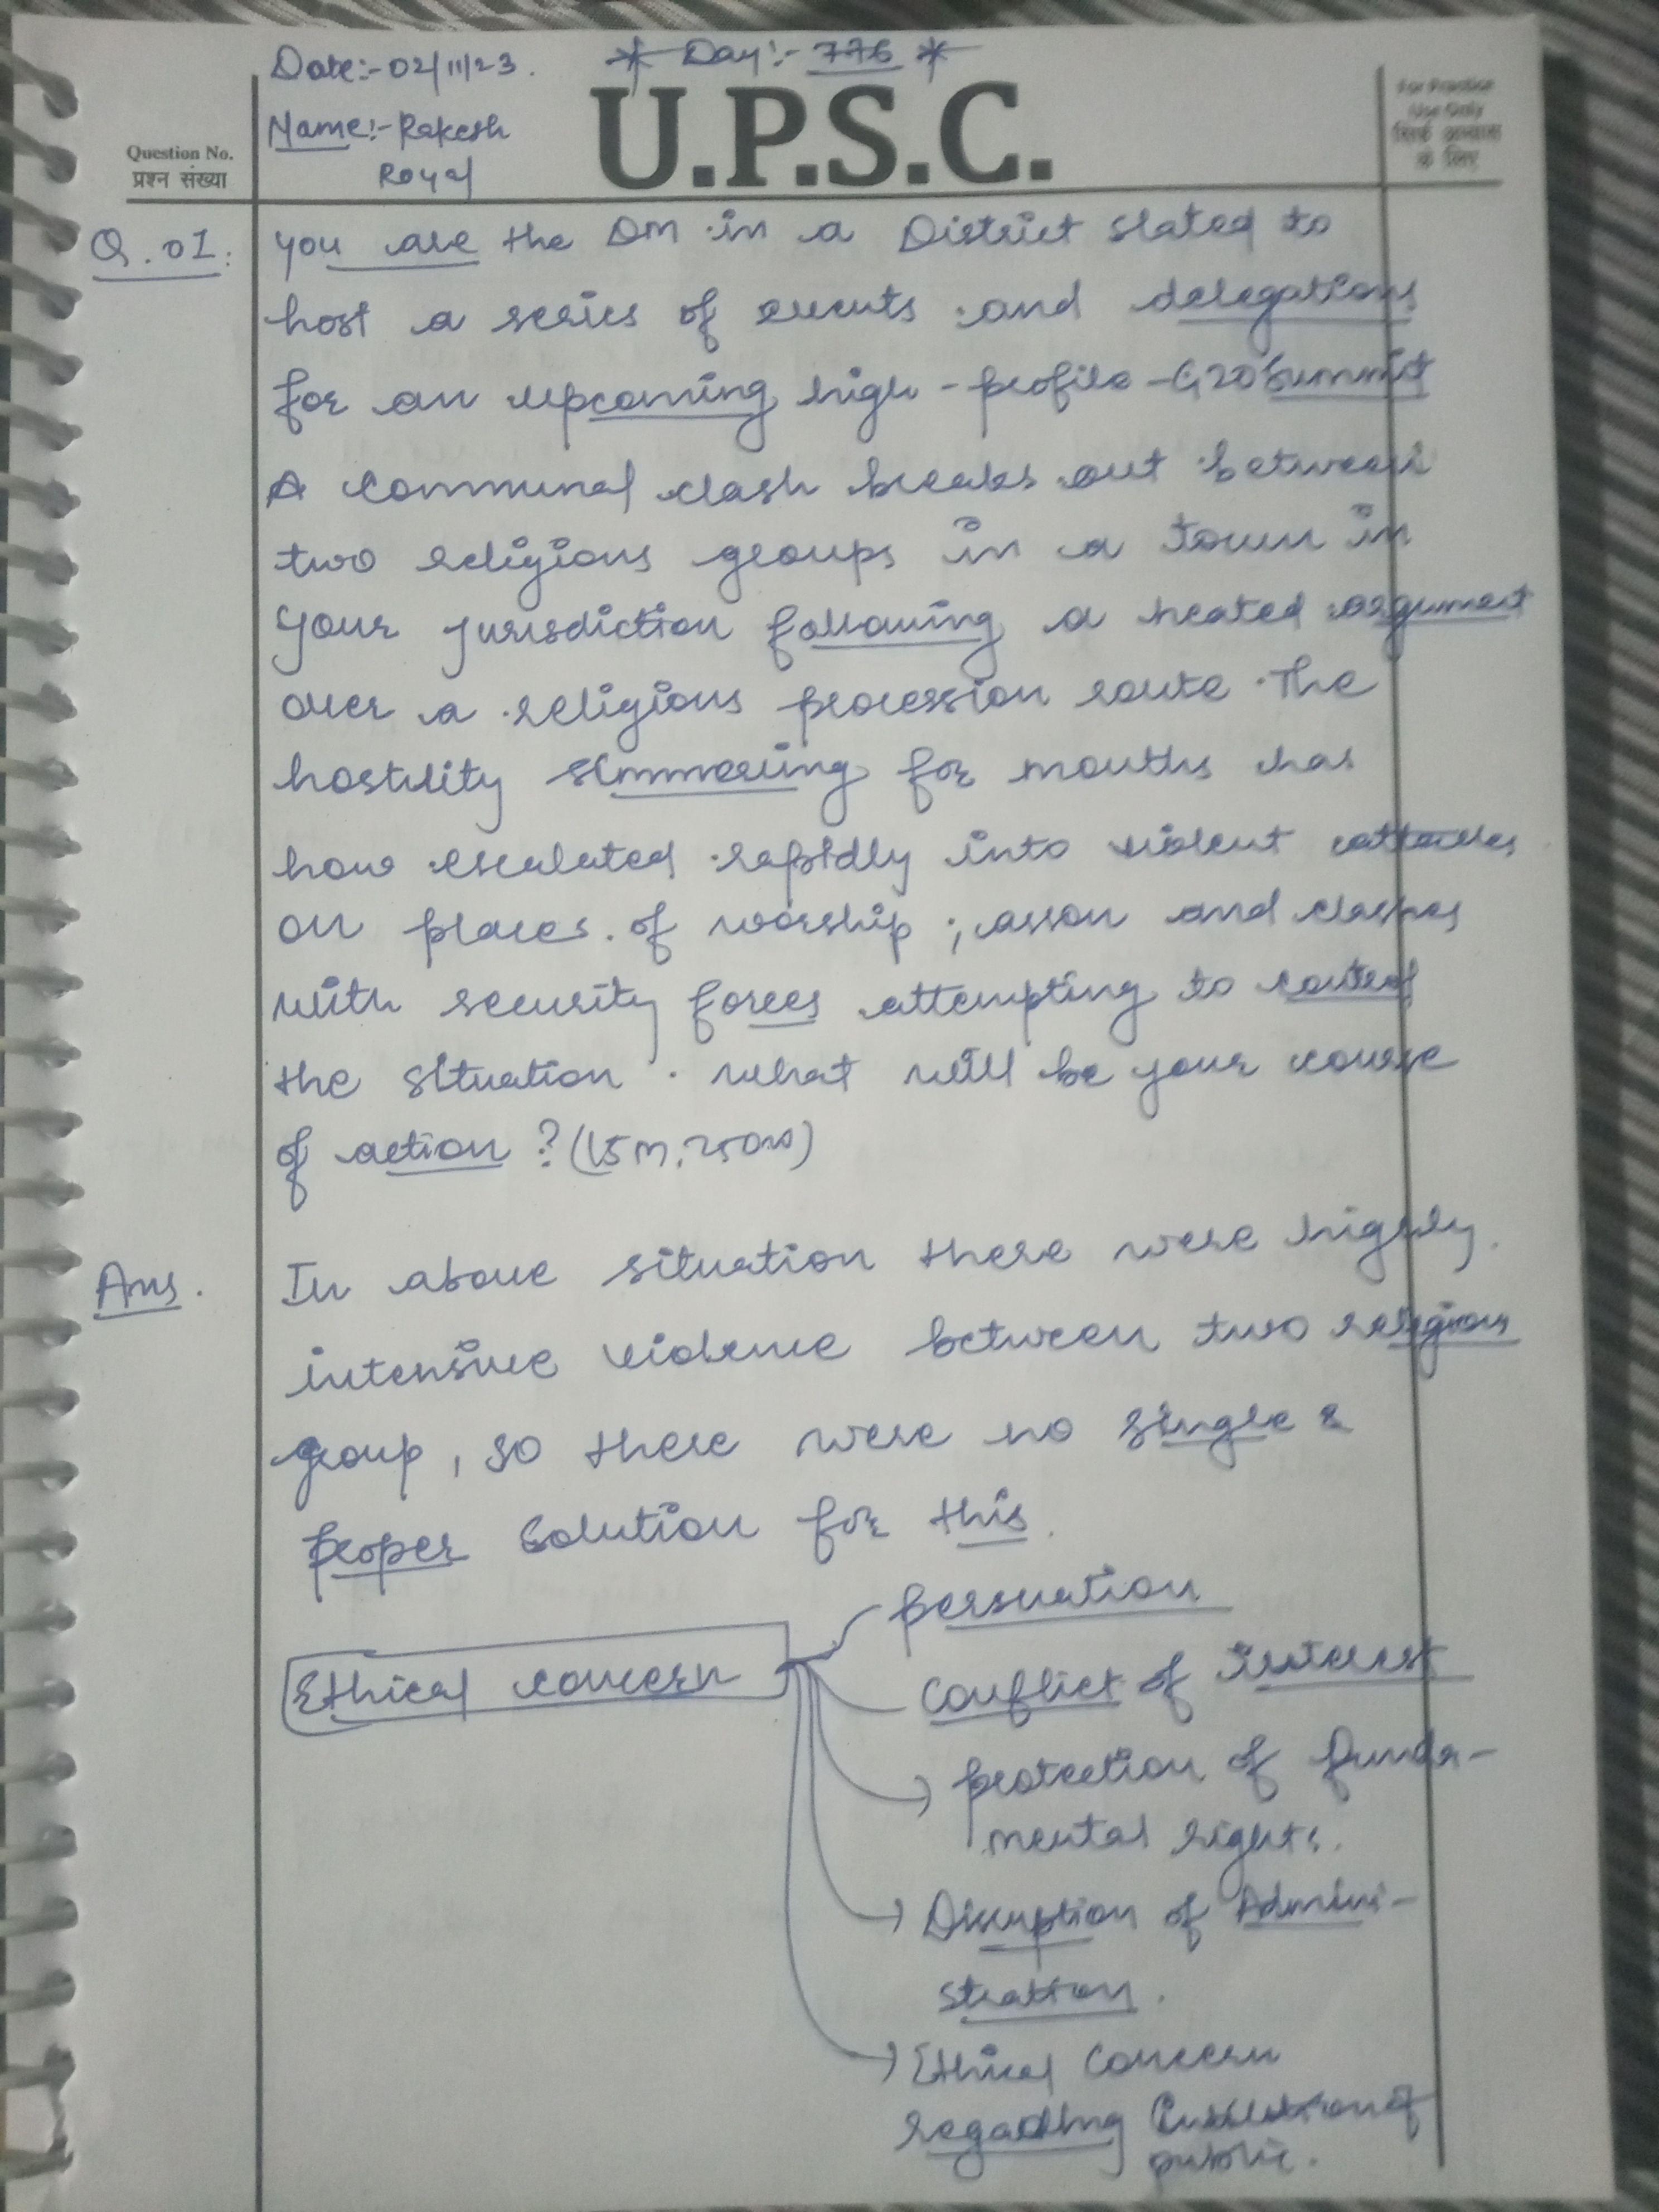 Date:- 02/11/23. * Day:- 776 *
Name:- Rakesh
Royal
U.P.S.C.
For Practice
Use Only
सिर्फ अभ्यास
के लिए
Question No.
प्रश्न संख्या
Q.01. you are the DM in a District slated to
host a series of events and delegations
for an upcoming high-profile-G20 Summit
A communal clash breaks out between
two religious groups in a town in
your jurisdiction following a heated argument
over a religious procession route. The
hostility simmering for months has
now escalated rapidly into violent attacks
on places of worship; arson and clashes
with security forces attempting to control
the situation. what will be your course
of action? (15m, 250w)
Ans. In above situation there were highly
intensive violence between two religious
group, so there were no single &
proper solution for this.
Ethical concern
persuation
Conflict of interest
→ protection of funda-
mental rights.
→ Disruption of Admini-
stration.
→ Ethical Concern
regarding
public.